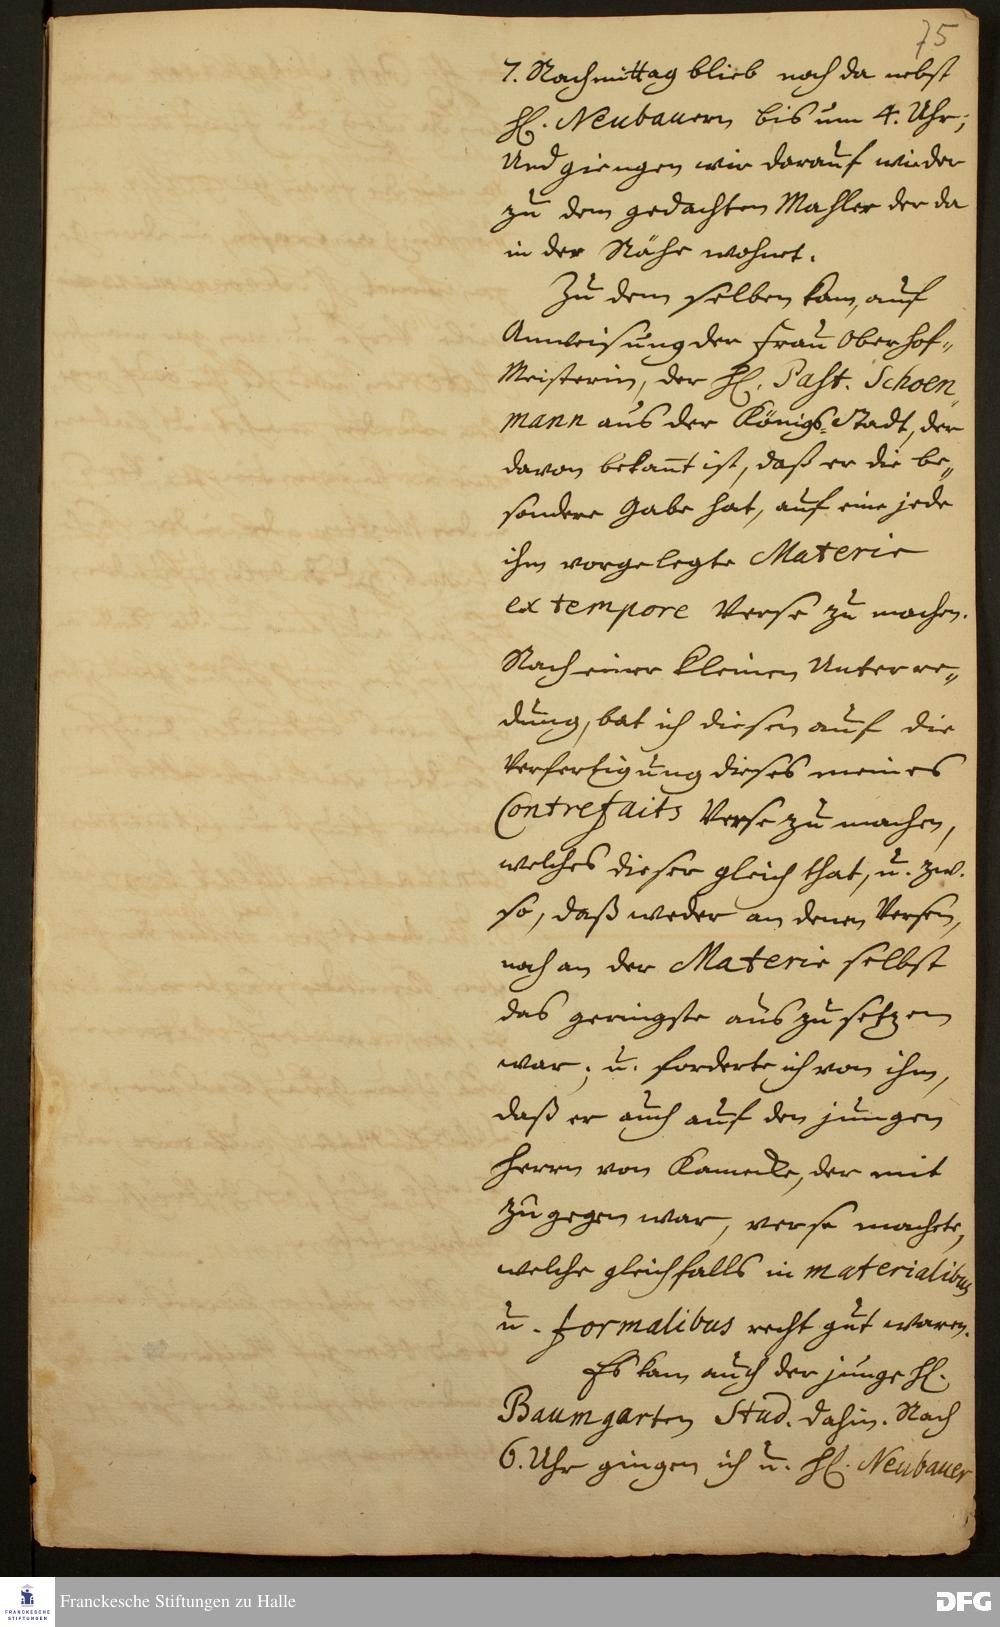 75
7. Nachmittag blieb noch da nebst
H. Neubauern bis um 4. Uhr;
Und giengen wir darauf wieder
zu dem gedachten Mahler der da
in der Nähe wohnet.
Zu dem selben kam, auf
Anweisung der Frau Oberhof„
Meisterin, der H. Past. Schoen„
mann aus der Königs=Stadt, der
davon bekant ist, daß er die be„
sondere Gabe hat, auf eine jede
ihm vorgelegte Materie
ex tempore Verse zu machen.
Nach einer kleinen Unterre„
dung, bat ich diesen auf die
Verfertigung dieses meines
Contrefaits Verse zu machen,
welches dieser gleich that, u. zw.
so, daß weder an denen Versen,
noch an der Materie selbst
das geringste auszusetzen
war; u. forderte ich von ihm,
daß er auch auf den jungen
Herrn von Kamecke, der mit
zugegen war, Verse machete,
welche gleichfalls in materialibus
u. formalibus recht gut waren.
Es kam auch der junge H.
Baumgarten Stud. dahin. Nach
6. Uhr gingen ich u. H. Neubauer
FRANCKESCHE
STIFTUNGEN
Franckesche Stiftungen zu Halle
DFG